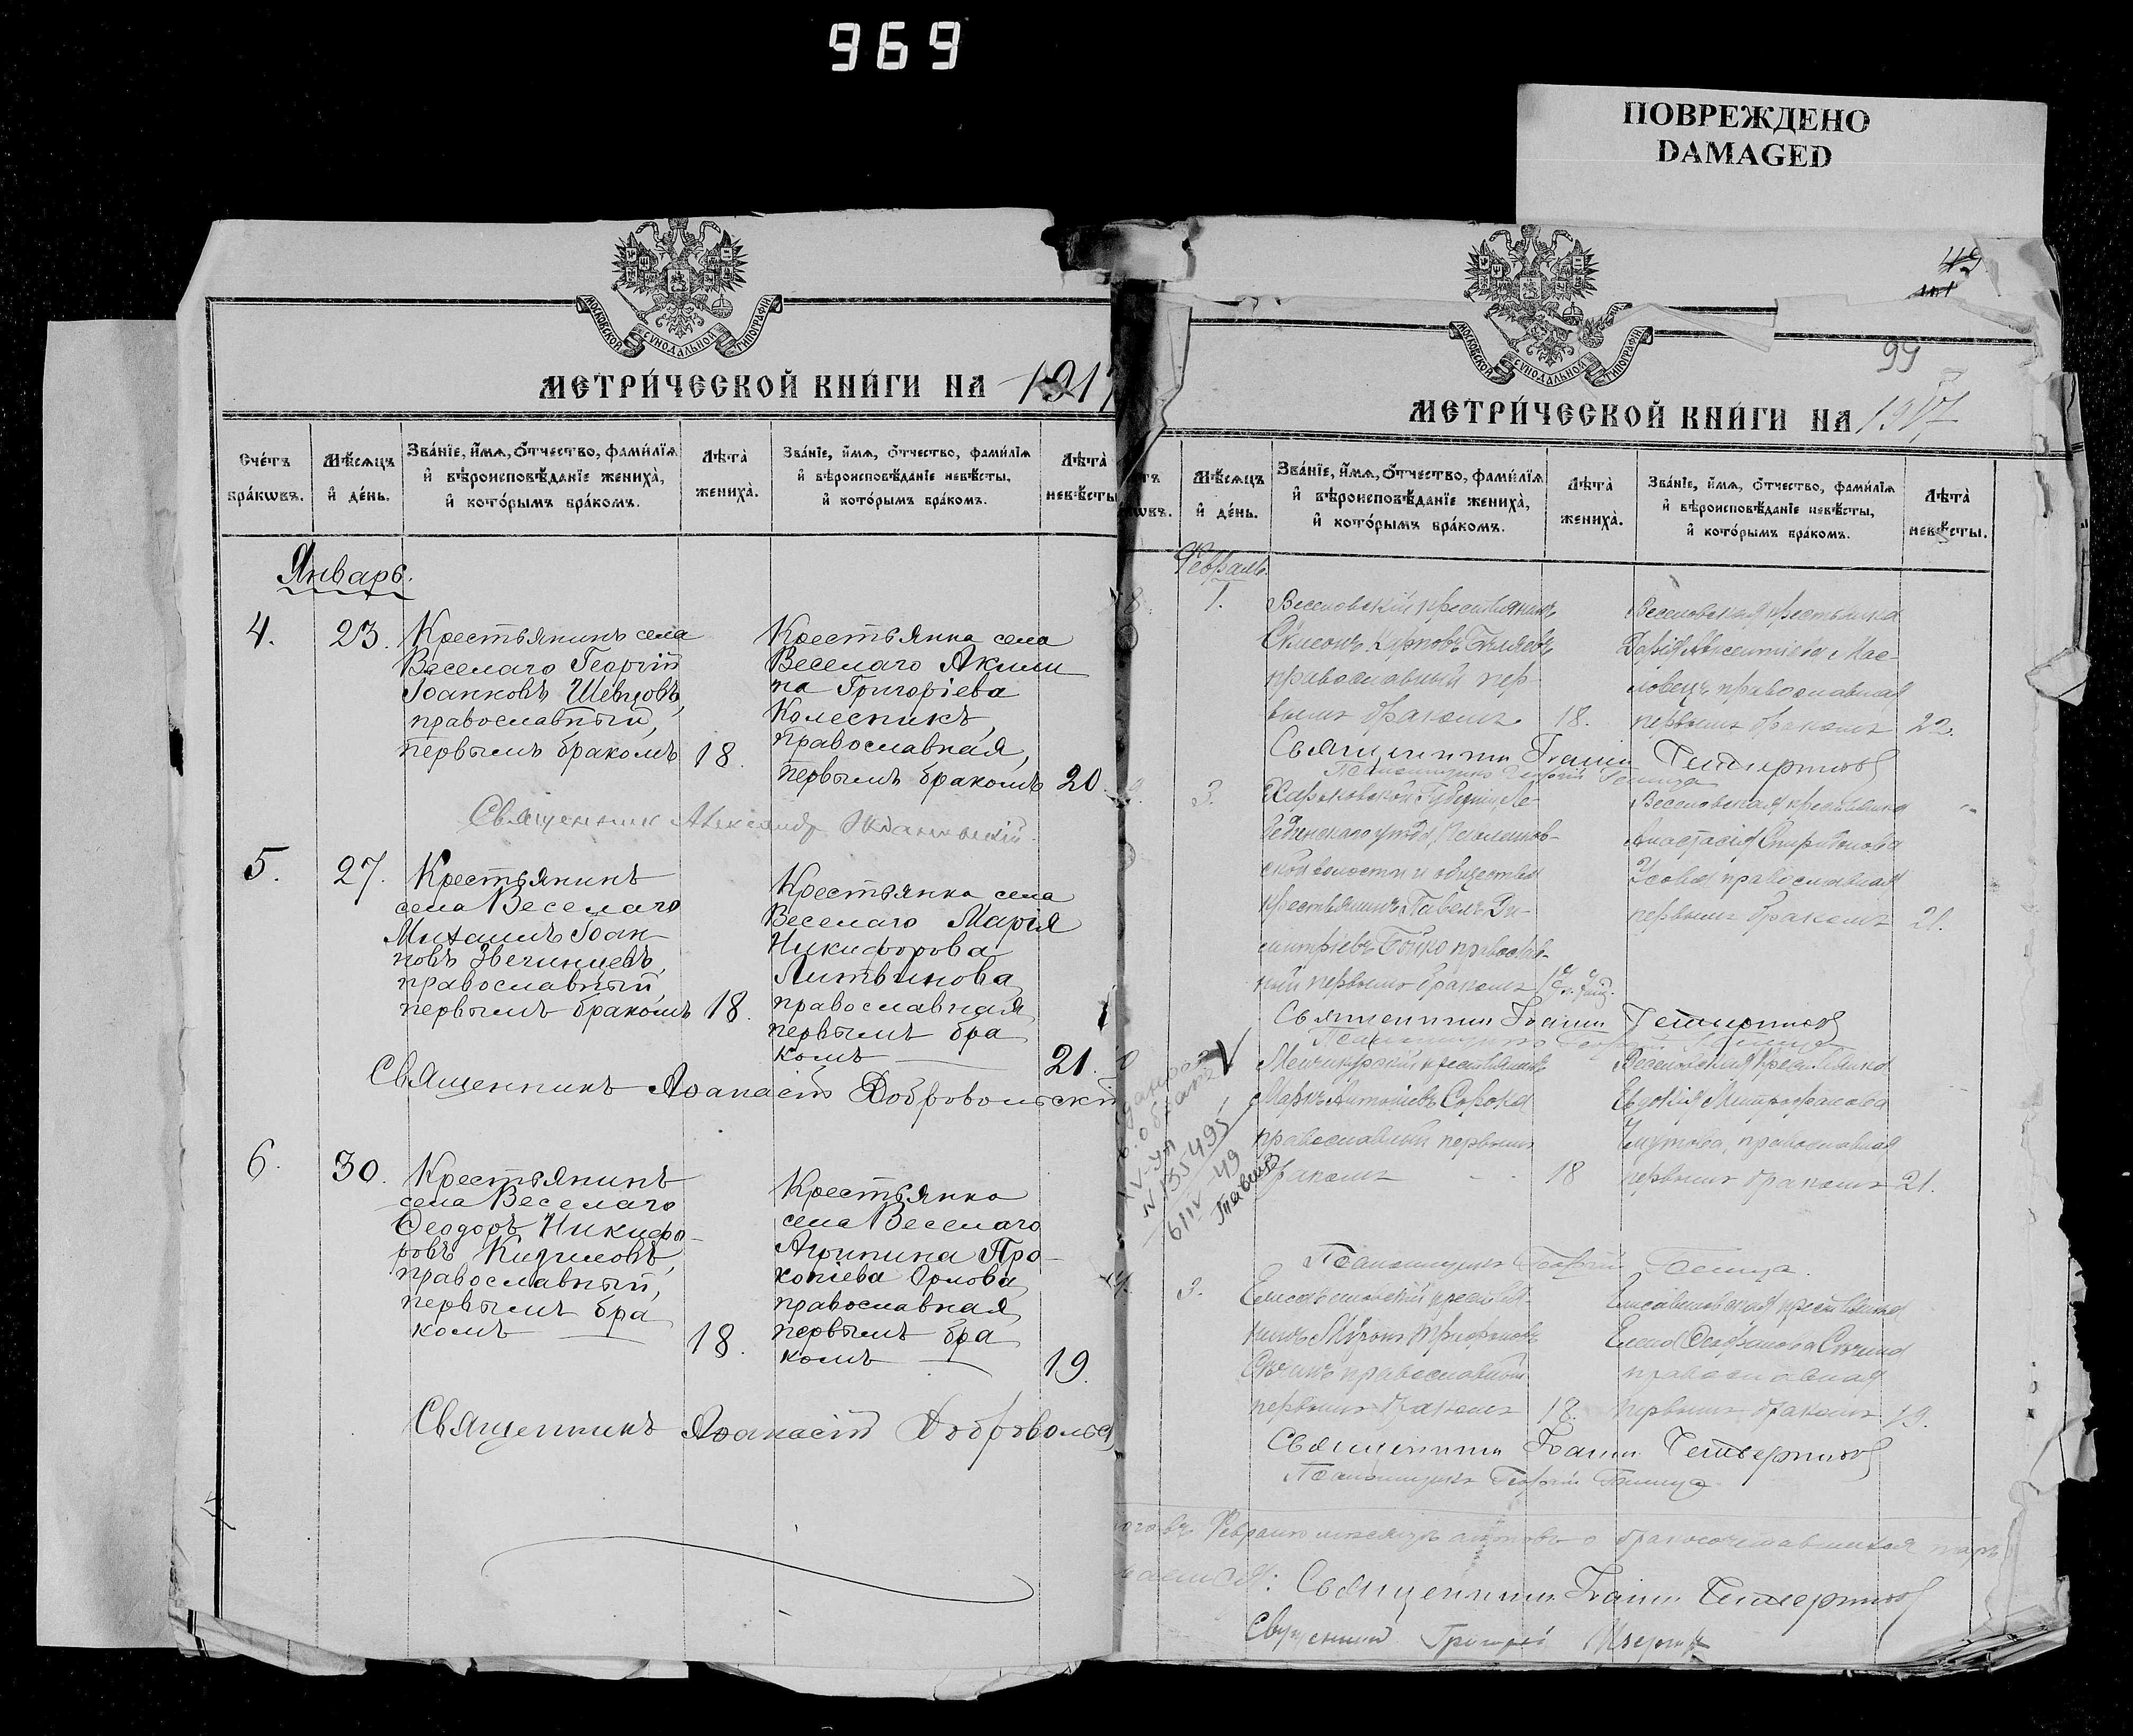 969
ПОВРЕЖДЕНО
DAMAGED
МОСКОВСКОЙ СУНОДАЛЬНОЙ ТИПОГРАФІИ
МЕТРИ́ЧЕСКОЙ КНИ́ГИ НА 1917
Сче́тъ бра́кωвъ.
Мѣ́сяцъ и҆ де́нь.
Зва́нїе, и҆́мѧ, ѻ҆́тчество, фами́лїѧ
и҆ вѣроисповѣ́данїе жениха̀,
и҆ кото́рымъ бра́комъ.
Лѣ́та̀ жениха̀.
Зва́нїе, и҆́мѧ, ѻ҆́тчество, фами́лїѧ
и҆ вѣроисповѣ́данїе невѣ́сты,
и҆ кото́рымъ бра́комъ.
Лѣ́та̀ невѣ́сты
Январь.
4.
23.
Крестьянинъ села
Веселаго Георгій
Іоанновъ Шевцовъ,
православный,
первымъ бракомъ
18.
Крестьянка села
Веселаго Акили
на Григоріева
Колесникъ,
православная,
первымъ бракомъ
20.
Священникъ Александр
5.
27.
Крестьянинъ
села Веселаго
Михаилъ Іоан
новъ Звегинцевъ,
православный,
первымъ бракомъ
18.
Крестьянка села
Веселаго Марія
Никифорова
Литвинова,
православная,
первымъ бра
комъ
21.
Священникъ Аѳанасій Добровольскі
6.
30.
Крестьянинъ
села Веселаго
Ѳеодоръ Никифо-
ровъ
православный,
первымъ бра
комъ
18.
Крестьянка
села Веселаго
Агрипина Про-
копіева Орлова,
православная,
первымъ бра
комъ
19.
Священникъ Аѳанасій Добровольск
МОСКОВСКОЙ СУНОДАЛЬНОЙ ТИПОГРАФІИ
49
99
МЕТРИ́ЧЕСКОЙ КНИ́ГИ НА 1917
Мѣ́сяцъ и҆ де́нь.
Зва́нїе, и҆́мѧ, ѻ҆́тчество, фами́лїѧ
и҆ вѣроисповѣ́данїе жениха̀,
и҆ кото́рымъ бра́комъ.
Лѣ́та̀ жениха̀.
Зва́нїе, и҆́мѧ, ѻ҆́тчество, фами́лїѧ
и҆ вѣроисповѣ́данїе невѣ́сты,
и҆ кото́рымъ бра́комъ.
Лѣ́та̀ невѣ́сты.
Февраль.
8.
1.
Веселовскій крестьянинъ
Симеонъ Карповъ Бѣляевъ
православный пер-
вымъ бракомъ
18.
Веселовская крестьянка
Дарія Авксентіева Мас-
ловецъ православная
первымъ бракомъ
22.
Священникъ Іоаннъ Четвериковъ
Псаломщикъ Георгій
9.
3.
Харьковской Губерніи Ле-
бединскаго уѣзда
ской волости и общества
крестьянинъ Павелъ Ди-
митріевъ Бойко православ-
ный первымъ бракомъ
Веселовская крестьянка
Анастасія Спиридонова
Усова православная
первымъ бракомъ
21.
Священникъ Іоаннъ Четвериковъ
Псаломщикъ Георгій
V
крестьянинъ
Маркъ Антоніевъ Сорока
православный первымъ
бракомъ
18
Веселовская крестьянка
Евдокія Митрофанова
православная
первымъ бракомъ
21.
XV-УЛ
N 135495
6/IV-49
Псаломщикъ Георгій
3.
Елисаветовскій крестья-
нинъ Мѵронъ Трифоновъ
православный
первымъ бракомъ
18.
Елисаветовская крестьянка
Елена
православная
первымъ бракомъ
19.
Священникъ Іоаннъ Четвериковъ
Псаломщикъ Георгій
въ Февралѣ мѣсяцѣ актовъ о бракосочетавшихся
Священникъ Іоаннъ Четвериковъ
Священникъ Григорій